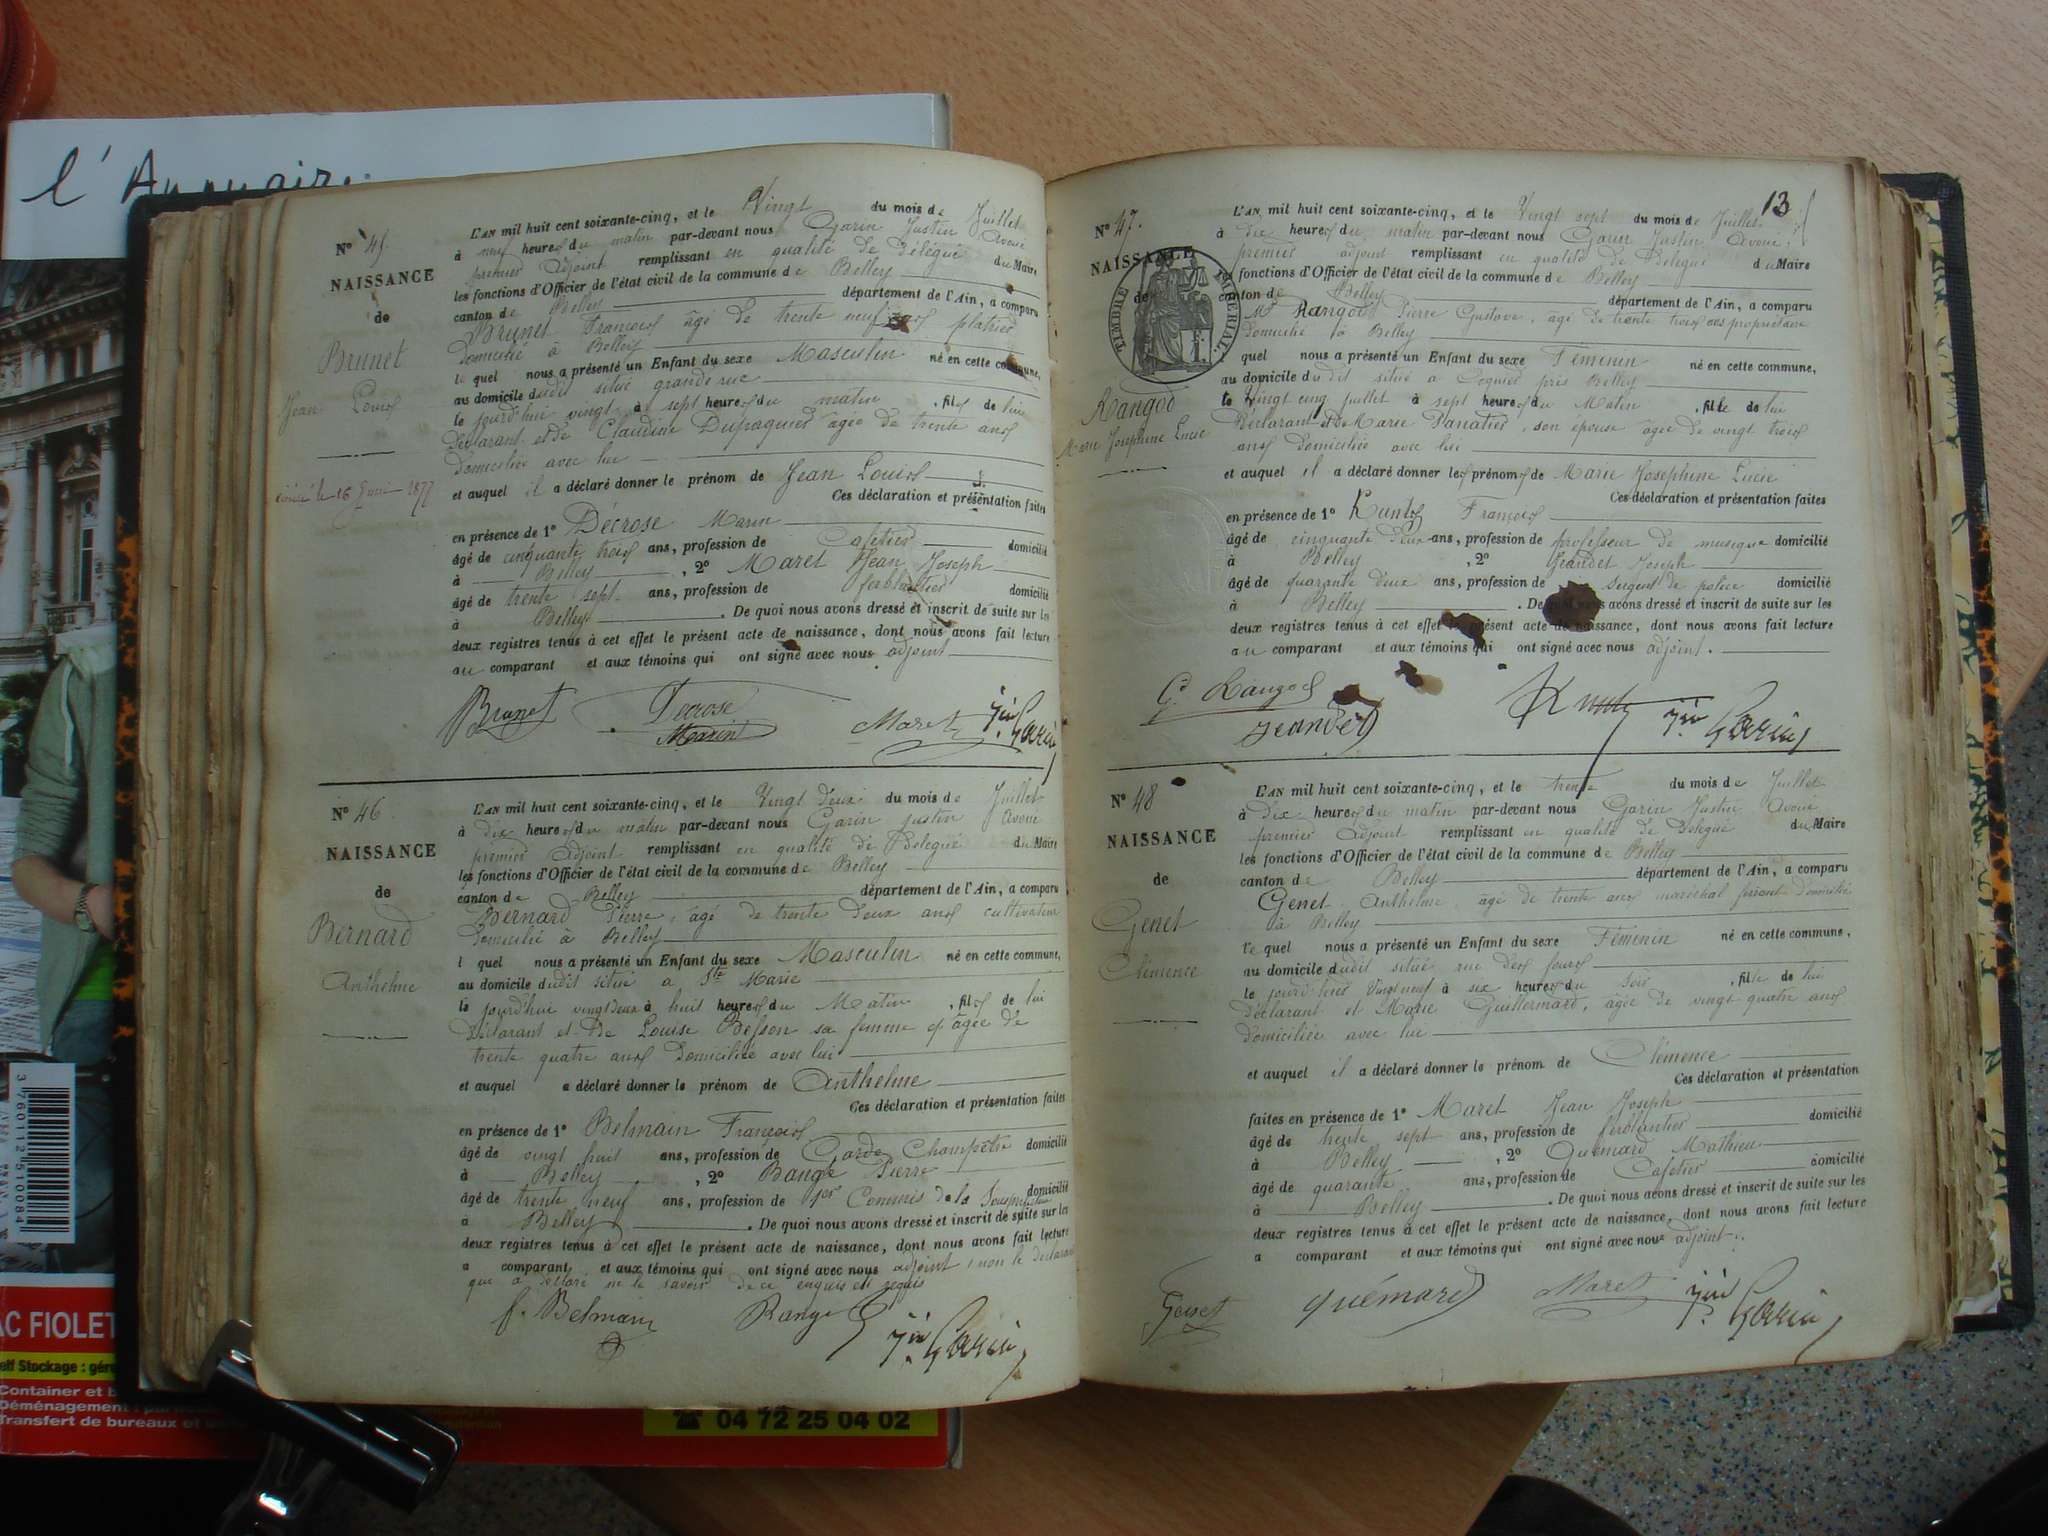 l'Annuaire
N° 45
NAISSANCE
de
Brunet
Jean Louis
L'AN mil huit cent soixante-cinq, et le Vingt du mois de Juillet
à neuf heures du matin par-devant nous Garin Justin Avoué
premier adjoint remplissant en qualité de Délégué du Maire
les fonctions d'Officier de l'état civil de la commune de Belley
canton de Belley département de l'Ain, a comparu
Brunet François âgé de trente neuf ans platrier
domicilié à Belley
lequel nous a présenté un Enfant du sexe Masculin né en cette commune,
au domicile dudit situé grande rue
le jourd'hui vingt à sept heures du matin, fils de lui
déclarant et de Claudine Dupaquier âgée de trente ans
domiciliée avec lui
et auquel il a déclaré donner le prénom de Jean Louis
Ces déclaration et présentation faites
en présence de 1° Décrose Marin
âgé de cinquante trois ans, profession de Cafetier domicilié
à Belley, 2° Maret Jean Joseph
âgé de trente sept ans, profession de ferblantier domicilié
à Belley. De quoi nous avons dressé et inscrit de suite sur les
deux registres tenus à cet effet le présent acte de naissance, dont nous avons fait lecture
au comparant et aux témoins qui ont signé avec nous adjoint
Brunet Décrose Marin Maret Jin Garin
N° 46
NAISSANCE
de
Bernard
Anthelme
L'AN mil huit cent soixante-cinq, et le Vingt deux du mois de Juillet
à dix heures du matin par-devant nous Garin Justin Avoué
premier adjoint remplissant en qualité de Délégué du Maire
les fonctions d'Officier de l'état civil de la commune de Belley
canton de Belley département de l'Ain, a comparu
Bernard Pierre, âgé de trente deux ans cultivateur
domicilié à Belley
l quel nous a présenté un Enfant du sexe Masculin né en cette commune,
au domicile dudit situé a Ste Marie
le jourd'hui vingt deux à huit heures du Matin, fils de lui
Déclarant et De Louise Besson sa femme âgée de
trente quatre ans domiciliée avec lui
et auquel a déclaré donner le prénom de Anthelme
Ces déclaration et présentation faites
en présence de 1° Belmain François
âgé de vingt huit ans, profession de Garde Champetre domicilié
à Belley, 2° Range Pierre
âgé de trente neuf ans, profession de 1er Commis de la Souspréfecture domicilié
à Belley. De quoi nous avons dressé et inscrit de suite sur les
deux registres tenus à cet effet le présent acte de naissance, dont nous avons fait lecture
a comparant et aux témoins qui ont signé avec nous adjoint, non le déclarant
que a déclaré ne le savoir de ce enquis et requis
f. Belmain Range Jin Garin
13
N° 47.
NAISSANCE
de
TIMBRE IMPERIAL
Rangod
Marie Joséphine Lucie
L'AN mil huit cent soixante-cinq, et le Vingt sept du mois de Juillet
à dix heures du matin par-devant nous Garin Justin Avoué,
premier adjoint remplissant en qualité de Délégué du Maire
les fonctions d'Officier de l'état civil de la commune de Belley
canton de Belley département de l'Ain, a comparu
Mr Rangod Pierre Gustave, âgé de trente trois ans propriétaire
domicilié à Belley
quel nous a présenté un Enfant du sexe Féminin né en cette commune,
au domicile dudit situé a Coguier près Belley
le Vingt cinq juillet à sept heures du Matin, fille de lui
Déclarant et de Marie Panatier, son épouse âgée de vingt trois
ans domiciliée avec lui
et auquel il a déclaré donner les prénoms de Marie Josephine Lucie
Ces déclaration et présentation faites
en présence de 1° Kuntz François
âgé de cinquante deux ans, profession de professeur de musique domicilié
à Belley, 2° Jeandet Joseph
âgé de quarante deux ans, profession de sergent de police domicilié
à Belley. De quoi nous avons dressé et inscrit de suite sur les
deux registres tenus à cet effet le présent acte de naissance, dont nous avons fait lecture
au comparant et aux témoins qui ont signé avec nous adjoint.
G. Rangod Kuntz Jin Garin
Jeandet
N° 48
NAISSANCE
de
Genet
Clémence
L'AN mil huit cent soixante-cinq, et le trente du mois de Juillet
à dix heures du matin par-devant nous Garin Justin Avoué
premier adjoint remplissant en qualité de Délégué du Maire
les fonctions d'Officier de l'état civil de la commune de Belley
canton de Belley département de l'Ain, a comparu
Genet Anthelme, âgé de trente ans maréchal ferrant domicilié
à Belley
le quel nous a présenté un Enfant du sexe Féminin né en cette commune,
au domicile dudit situé rue des fours
le jourd'hui Vingt neuf à six heures du soir, fille de lui
déclarant et Marie Guillermard, âgée de vingt quatre ans
domiciliée avec lui
et auquel il a déclaré donner le prénom de Clémence
Ces déclaration et présentation
faites en présence de 1° Maret Jean Joseph
âgé de trente sept ans, profession de ferblantier domicilié
à Belley, 2° Quémard Mathieu
âgé de quarante ans, profession de Cafetier domicilié
à Belley. De quoi nous avons dressé et inscrit de suite sur les
deux registres tenus à cet effet le présent acte de naissance, dont nous avons fait lecture
a comparant et aux témoins qui ont signé avec nous adjoint.
Genet quémard Maret Jin Garin
3 760112 510084
AC FIOLET
elf Stockage : gére
Container et
Déménagement :
Transfert de bureaux et
☎ 04 72 25 04 02